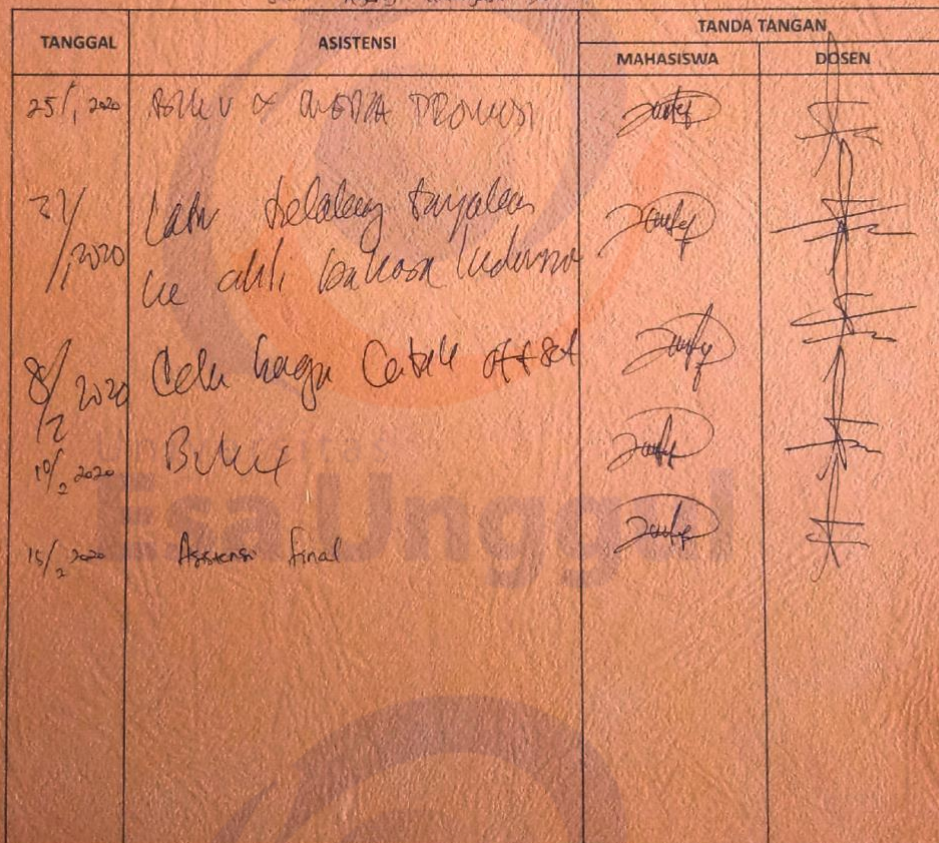 TANGGAL
ASISTENSI
TANDA TANGAN
MAHASISWA
DOSEN
25/1 2020
BUKU & MEDIA PROMOSI
31/1 2020
Latar belakang tanyakan
ke ahli bahasa Indonesia
8/2 2020
Cek harga Cetak offset
10/2 2020
Buku
15/2 2020
Asistensi final
Universitas
Esa Unggul